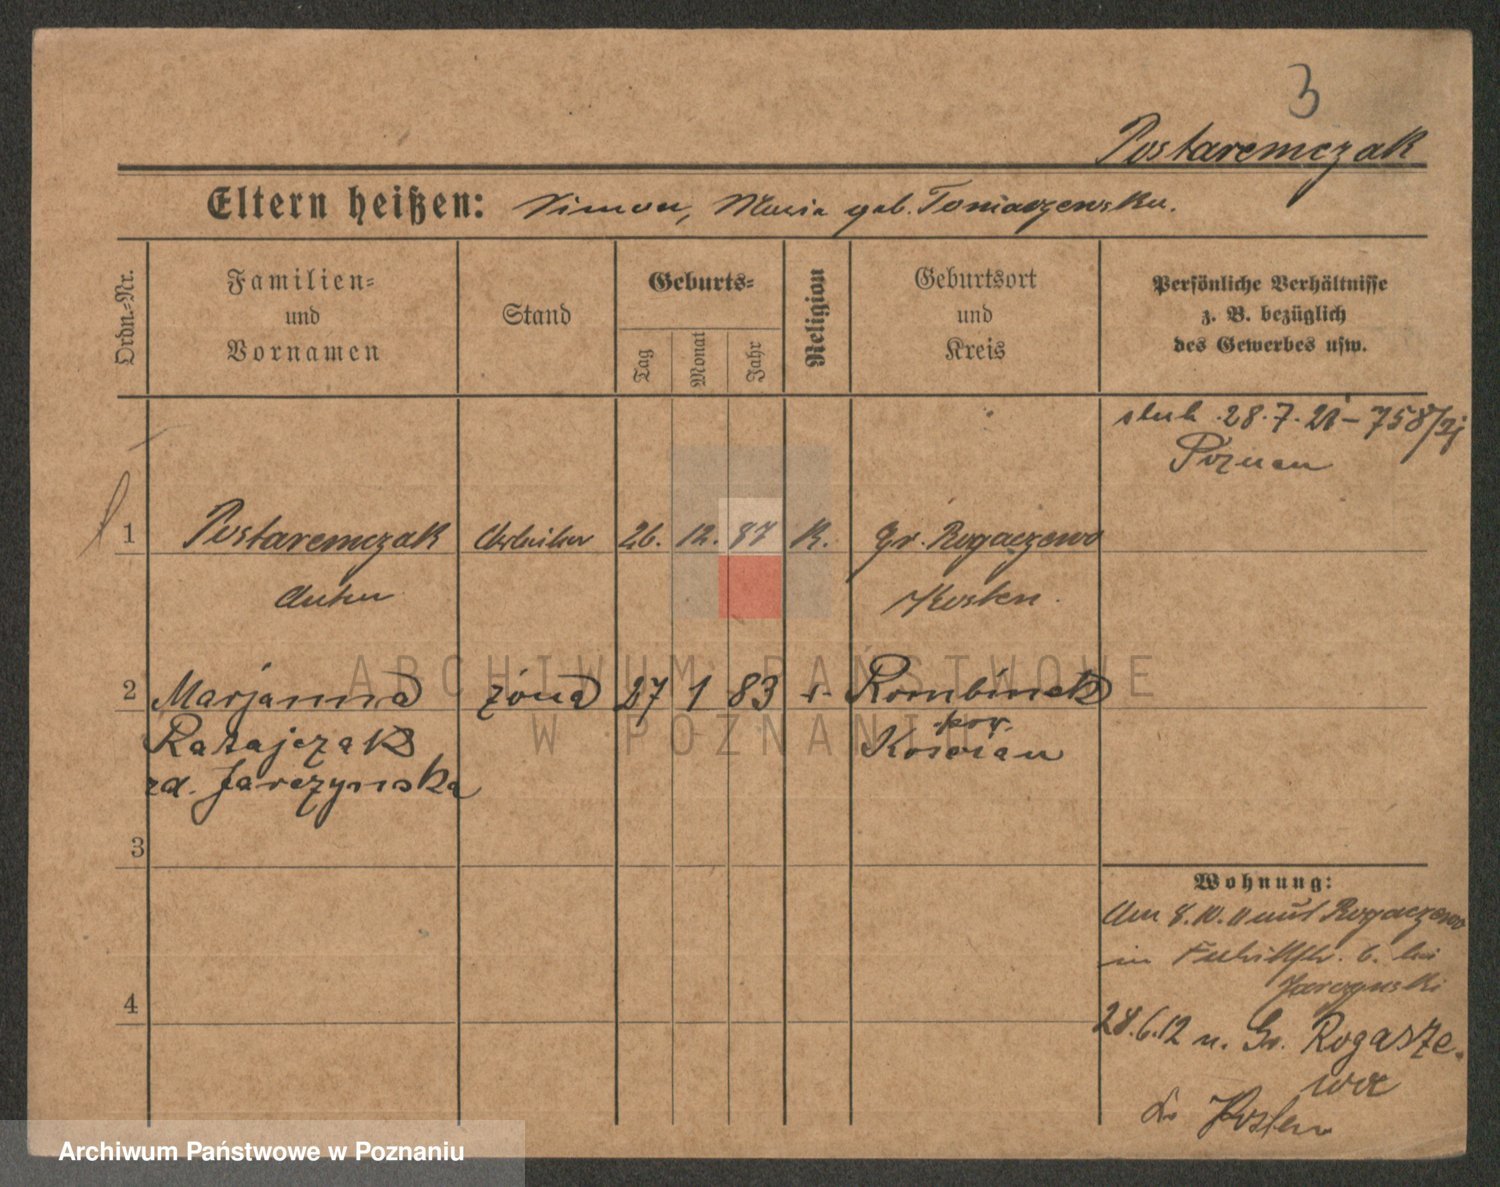 3
Postaremczak
Eltern heißen: Simon, Maria geb. Tomaszewska.
Ordn.-Nr.
Familien-
und
Vornamen
Stand
Geburts-
Tag
Monat
Jahr
Religion
Geburtsort
und
Kreis
Persönliche Verhältnisse
z. B. bezüglich
des Gewerbes usw.
ślub 28.7.21 – 758/21
Poznan
1 Postaremczak Arbeiter 26. 12. 87 K. Gr. Rogaczewo
Anton Kosten.
2 Marjanna żona 27 1 83 r. Rombinek
Ratajczak pow.
Kościan
zd. Jarczynska
3
Wohnung:
Am 8.10.11 aus Rogaczewo
in 6. bei
Jarczynski
4
28.6.12 n. Gr. Rogasze-
wo
Kr Kosten
ARCHIWUM PAŃSTWOWE
W POZNANIU
Archiwum Państwowe w Poznaniu